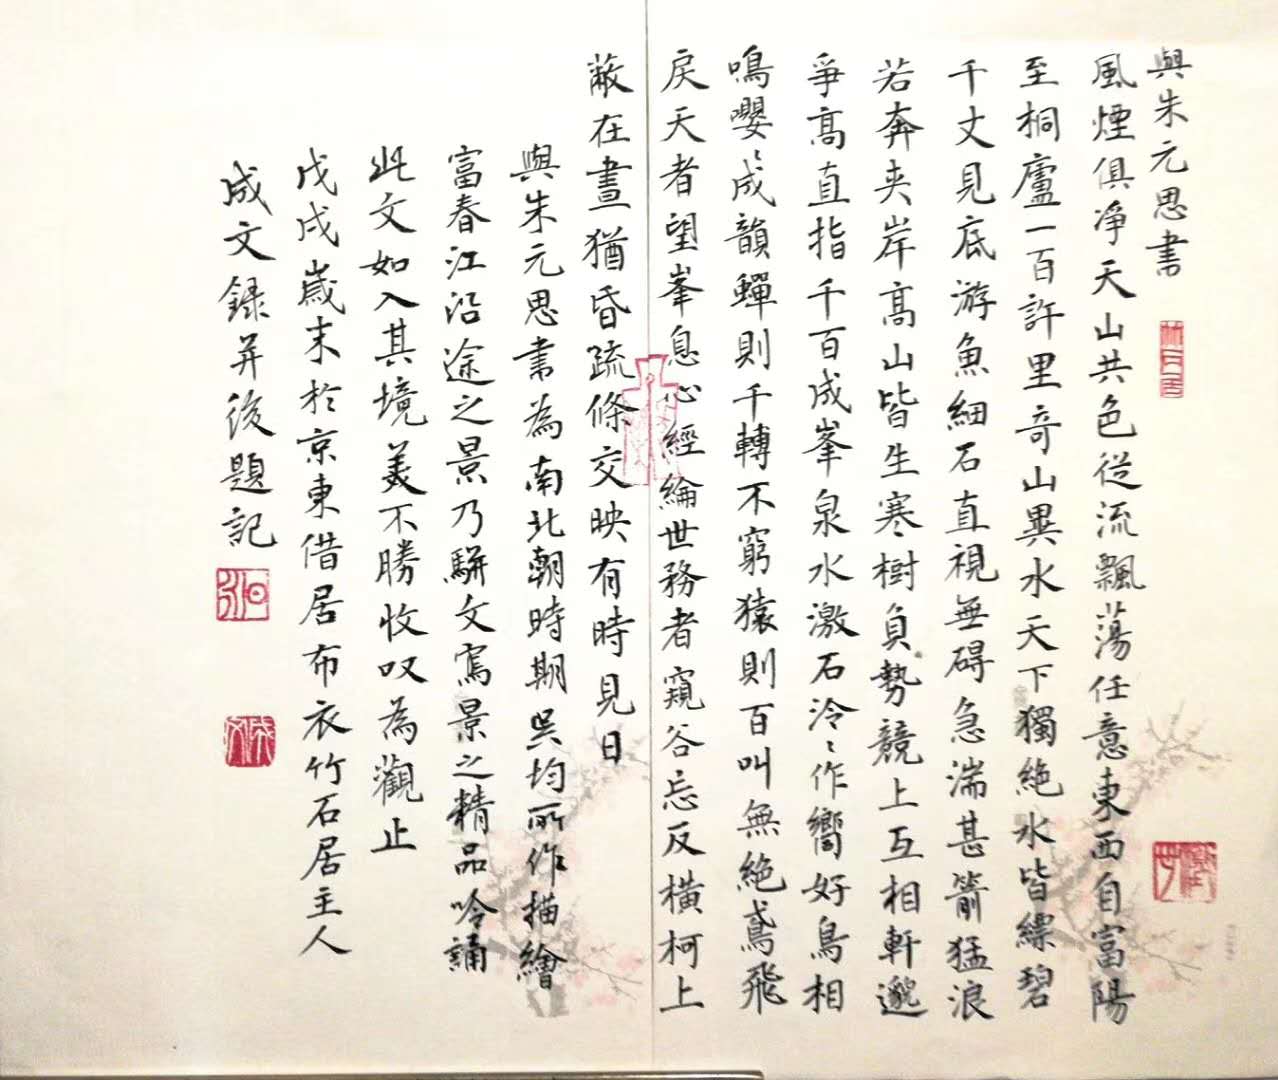 與朱元思書
風煙俱凈天山共色從流飄蕩任意東西自富陽
至桐廬一百許里奇山異水天下獨絶水皆縹碧
千丈見底游魚細石直視無碍急湍甚箭猛浪
若奔夾岸高山皆生寒樹負勢競上互相軒邈
爭高直指千百成峯泉水激石泠〻作嚮好鳥相
鳴嚶〻成韻蟬則千轉不窮猿則百叫無絶鳶飛
戾天者望峯息心經綸世務者窺谷忘反橫柯上
蔽在晝猶昏疏條交映有時見日
與朱元思書為南北朝時期吳均所作描繪
富春江沿途之景乃駢文寫景之精品吟誦
此文如入其境美不勝收叹為觀止
戊戌嵗末於京東借居布衣竹石居主人
成文録并後題記